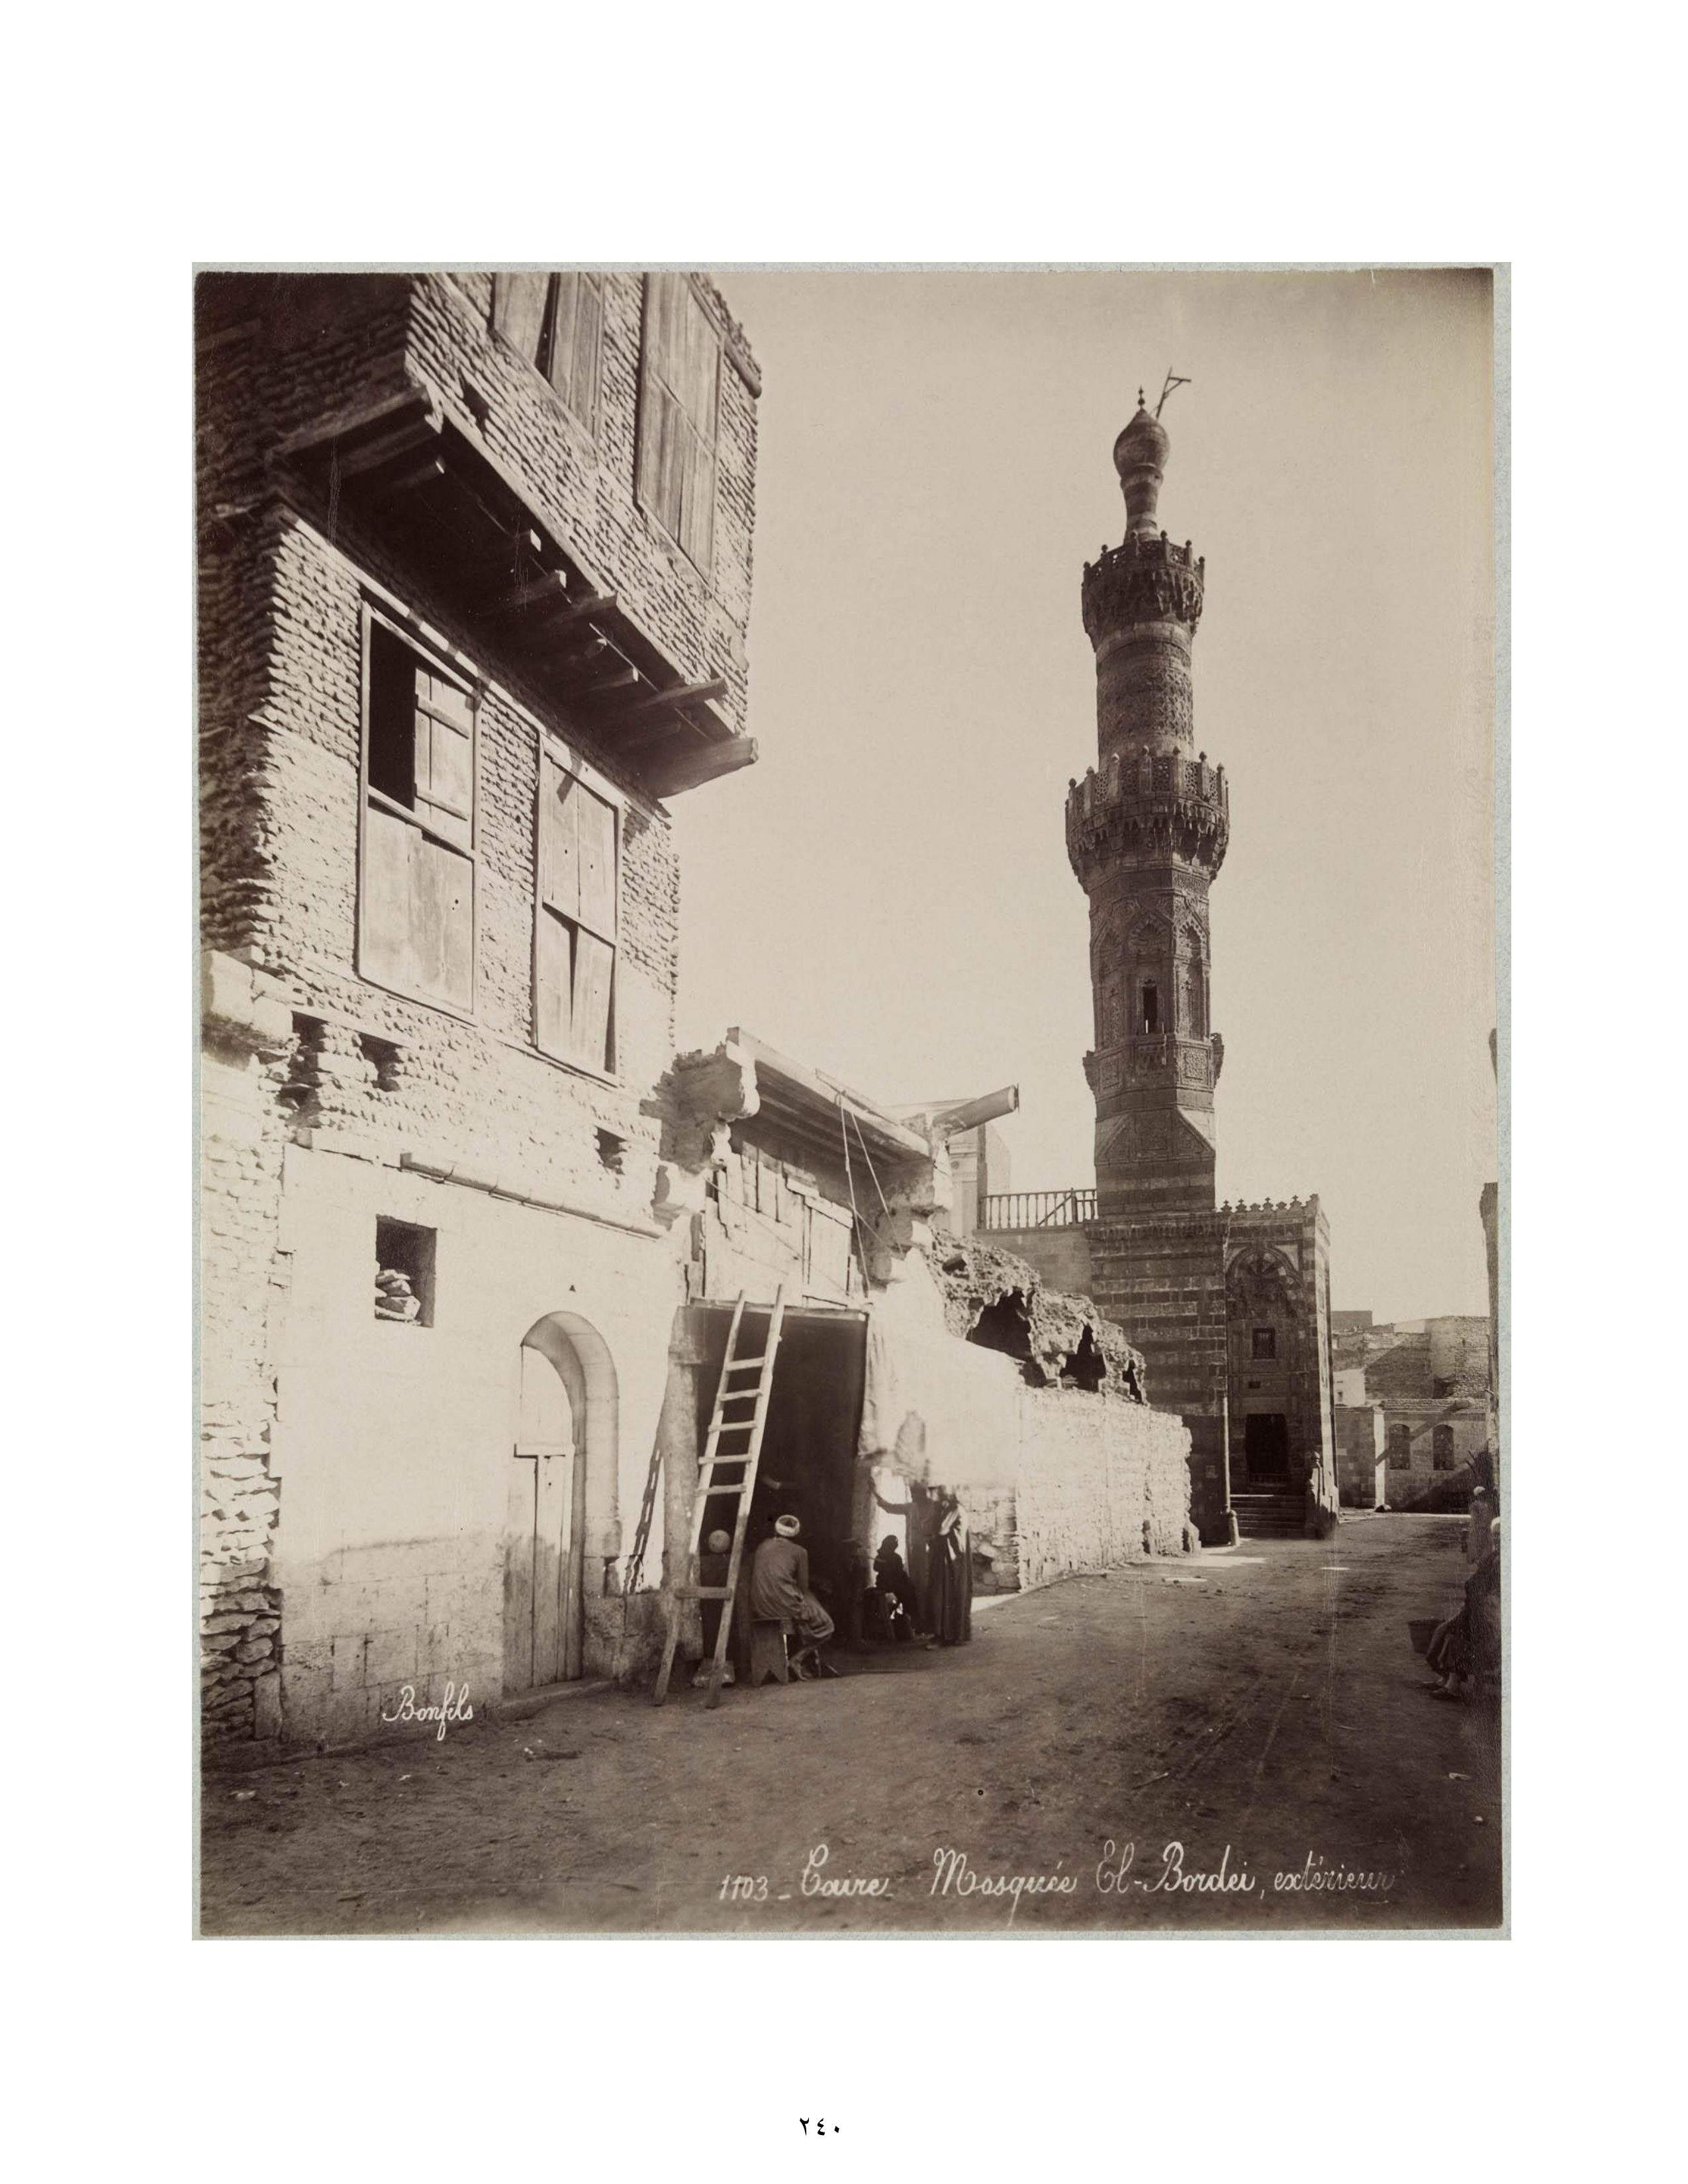 Bonfils
1103 _ Caire _ Mosquée El-Bordei, extérieur
٢٤٠